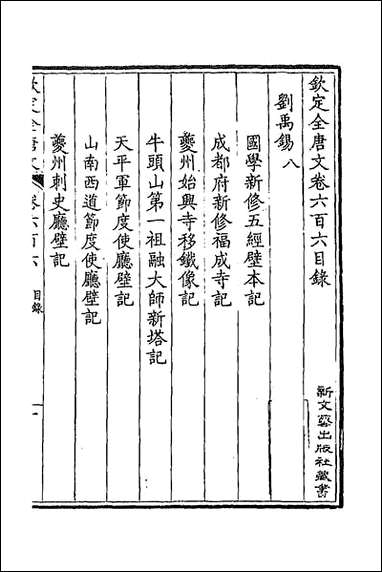 欽定全唐文卷六百六目錄
劉禹錫八
國學新修五經壁本記
成都府新修福成寺記
夔州始興寺移鐵像記
牛頭山第一祖融大師新塔記
天平軍節度使廳壁記
山南西道節度使廳壁記
夔州刺史廳壁記
欽定全唐文
卷六百六
目錄
一
新文藝出版社藏書